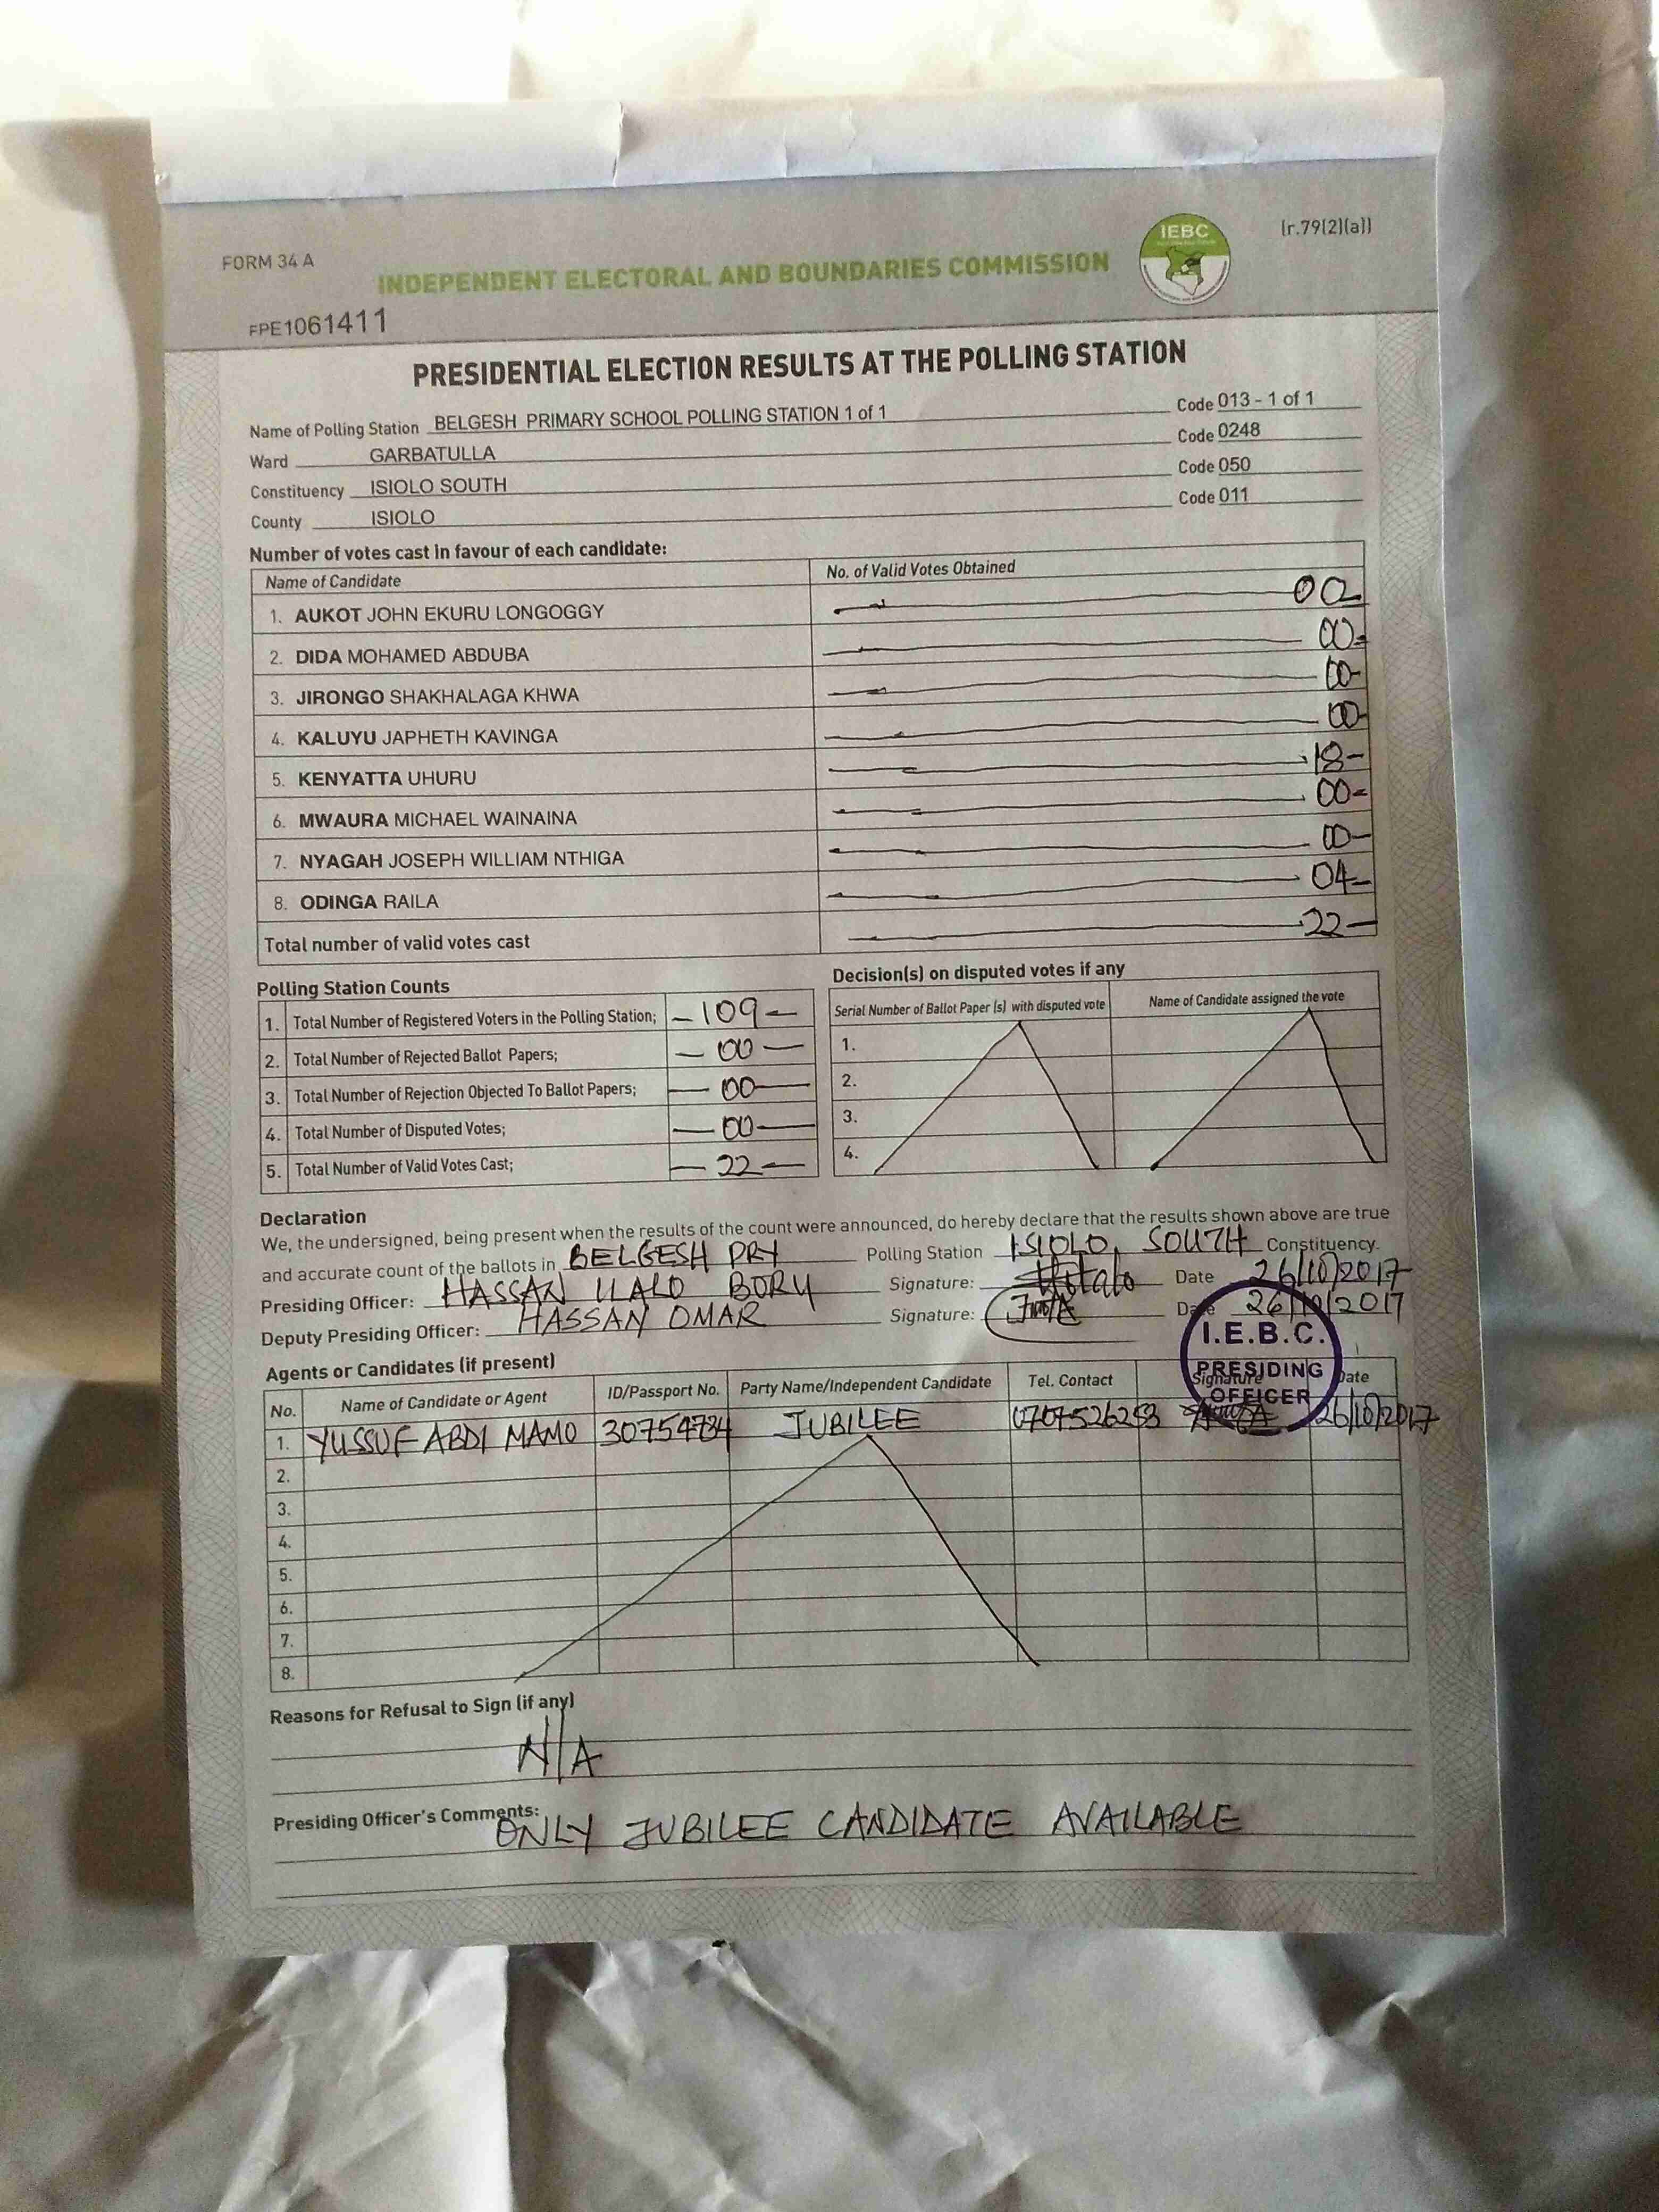 FORM 34 A
(r.79(2)(a))
IEBC
INDEPENDENT ELECTORAL AND BOUNDARIES COMMISSION
FPE1061411
PRESIDENTIAL ELECTION RESULTS AT THE POLLING STATION
Name of Polling Station BELGESH PRIMARY SCHOOL POLLING STATION 1 of 1 Code 013 - 1 of 1
Ward GARBATULLA Code 0248
Constituency ISIOLO SOUTH Code 050
County ISIOLO Code 011
Number of votes cast in favour of each candidate:
Name of Candidate No. of Valid Votes Obtained
1. AUKOT JOHN EKURU LONGOGGY 00
2. DIDA MOHAMED ABDUBA 00
3. JIRONGO SHAKHALAGA KHWA 00
4. KALUYU JAPHETH KAVINGA 00
5. KENYATTA UHURU 18
6. MWAURA MICHAEL WAINAINA 00
7. NYAGAH JOSEPH WILLIAM NTHIGA 00
8. ODINGA RAILA 04
Total number of valid votes cast 22
Polling Station Counts
1. Total Number of Registered Voters in the Polling Station; 109
2. Total Number of Rejected Ballot Papers; 00
3. Total Number of Rejection Objected To Ballot Papers; 00
4. Total Number of Disputed Votes; 00
5. Total Number of Valid Votes Cast; 22
Decision(s) on disputed votes if any
Serial Number of Ballot Paper (s) with disputed vote Name of Candidate assigned the vote
1.
2.
3.
4.
Declaration
We, the undersigned, being present when the results of the count were announced, do hereby declare that the results shown above are true
and accurate count of the ballots in BELGESH PRY Polling Station ISIOLO SOUTH Constituency.
Presiding Officer: HASSAN LLALO BORU Signature: Date 26/10/2017
Deputy Presiding Officer: HASSAN OMAR Signature: Date 26/10/2017
I.E.B.C.
PRESIDING
OFFICER
Agents or Candidates (if present)
No. Name of Candidate or Agent ID/Passport No. Party Name/Independent Candidate Tel. Contact Signature Date
1. YUSSUF ABDI MAMO 30754734 JUBILEE 0707526253 26/10/2017
2.
3.
4.
5.
6.
7.
8.
Reasons for Refusal to Sign (if any)
N/A
Presiding Officer's Comments:
ONLY JUBILEE CANDIDATE AVAILABLE